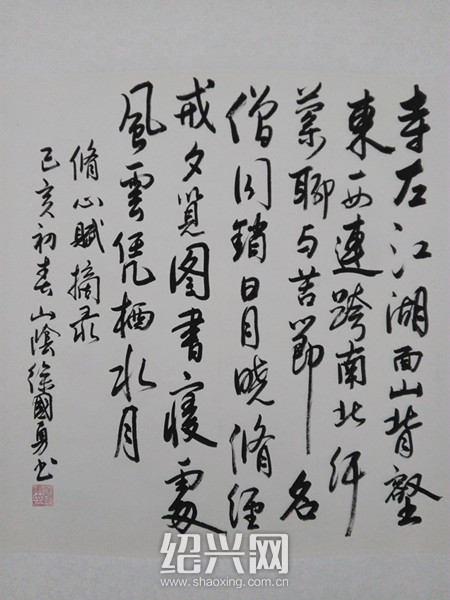 寺左江湖面山背壑
東西連跨南北紆
萦聊与苦節名
僧同銷日月晓脩經
戒夕覽图書寢處
風雲凭栖水月
脩心賦摘录
己亥初春山陰徐國勇书
绍兴网
www.shaoxing.com.cn